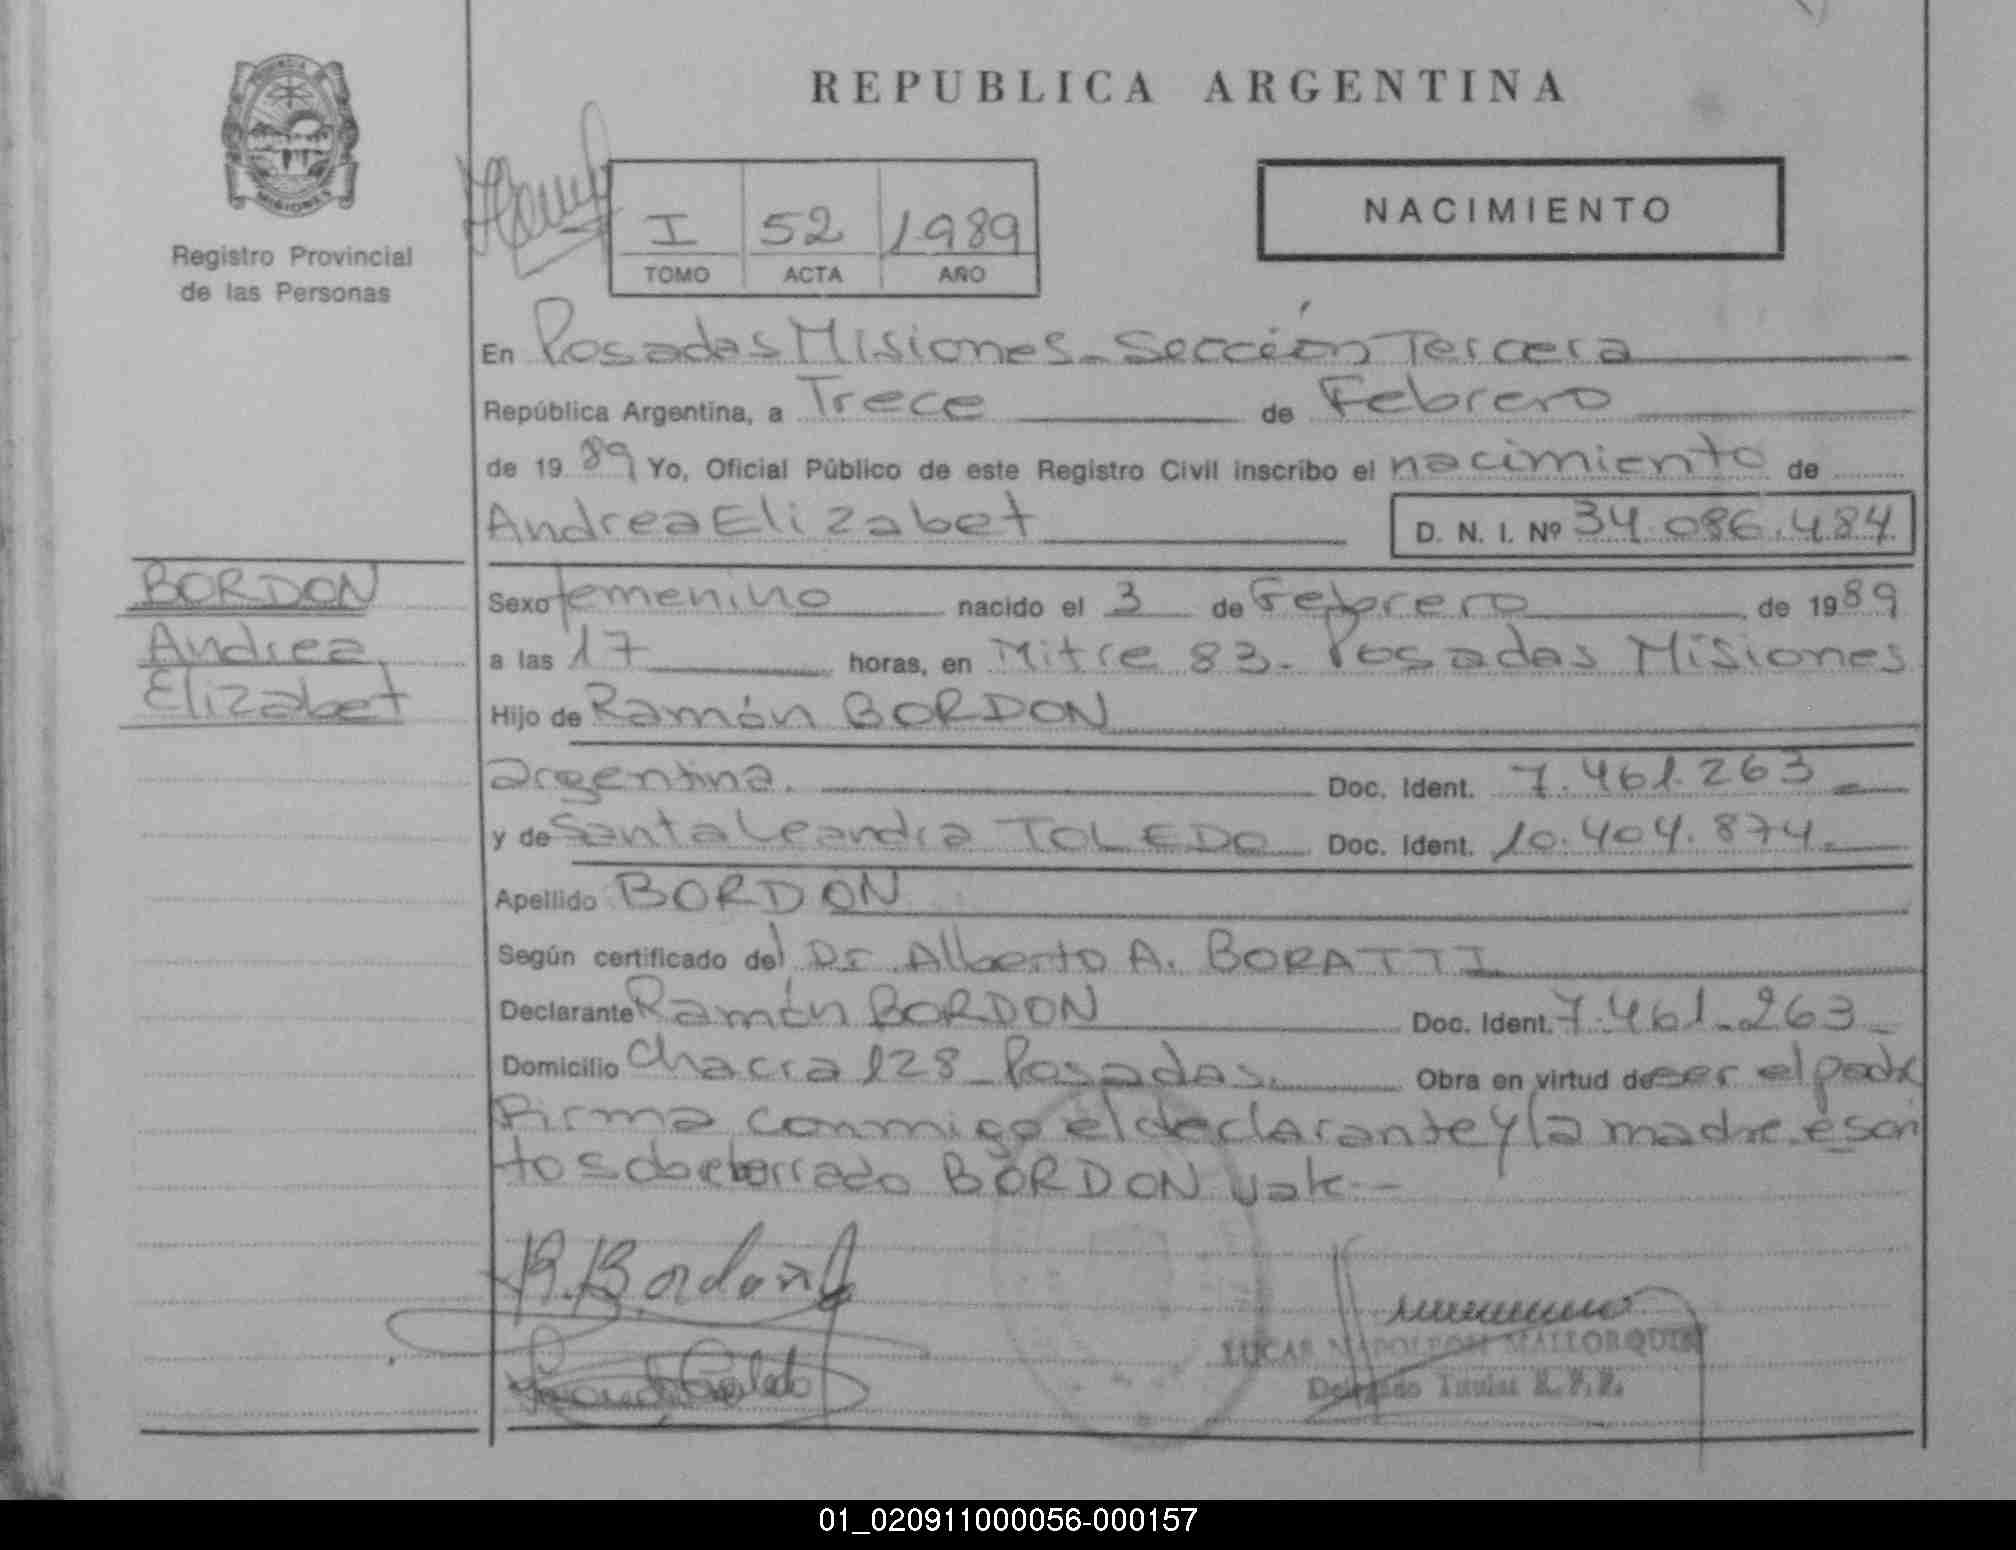 REPUBLICA ARGENTINA
PROVINCIA
MISIONES
Registro Provincial
de las Personas
I 52 1989
TOMO ACTA AÑO
NACIMIENTO
En Posadas Misiones - Sección Tercera
República Argentina, a Trece de Febrero
de 1989 Yo, Oficial Público de este Registro Civil inscribo el nacimiento de
Andrea Elizabet D. N. I. Nº 34.086.484
BORDON
Andrea
Elizabet
Sexo femenino nacido el 3 de Febrero de 1989
a las 17 horas, en Mitre 83 - Posadas Misiones
Hijo de Ramón BORDON
argentina. Doc. Ident. 7.461.263
y de Santa Leandra TOLEDO Doc. Ident. 10.404.874.
Apellido BORDON
Según certificado del Dr Alberto A. BORATTI
Declarante Ramón BORDON Doc. Ident. 7.461.263
Domicilio Chacra 128 - Posadas. Obra en virtud de ser el padre
Firma conmigo el declarante y la madre. escri
to sobreborrado BORDON vale --
R. Bordon
LUCAS NAPOLEON MALLORQUIN
Delegado Titular R. P. P.
01_020911000056-000157